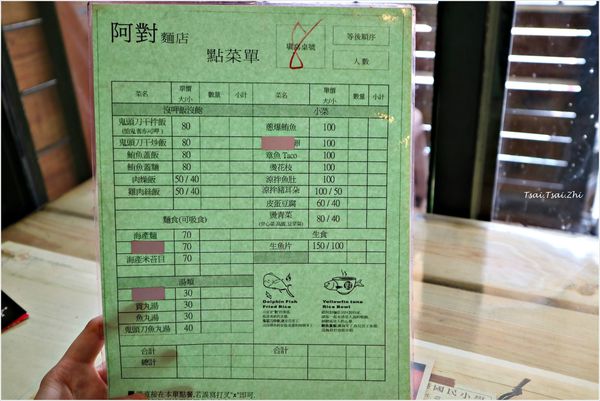 阿對麵店
點菜單
桌號
8
等後順序
人數
菜名 單價 大/小 數量 小計
沒呷飯沒飽
鬼頭刀干拌飯 80
鬼頭刀干炒飯 80
鮪魚蓋飯 80
鮪魚蓋麵 80
肉燥飯 50 / 40
雞肉絲飯 50 / 40
麵食(可吸食)
海產麵 70
70
海產米苔目 70
湯類
30
貢丸湯 30
魚丸湯 30
鬼頭刀魚丸湯 40
合計
總計
菜名 單價 大/小 數量 小計
小菜
蔥爆鮪魚 100
100
章魚 Taco 100
燙花枝 100
涼拌魚肚 100
涼拌豬耳朵 100 / 50
皮蛋豆腐 60 / 40
燙青菜 80 / 40
生食
生魚片 150 / 100
Dolphin Fish
Fried Rice
Yellowfin tuna
Rice Bowl
合計
直接在本單點餐,若誤寫打叉"x"即可.
國民小學
Tsai.Tsai.Zhi